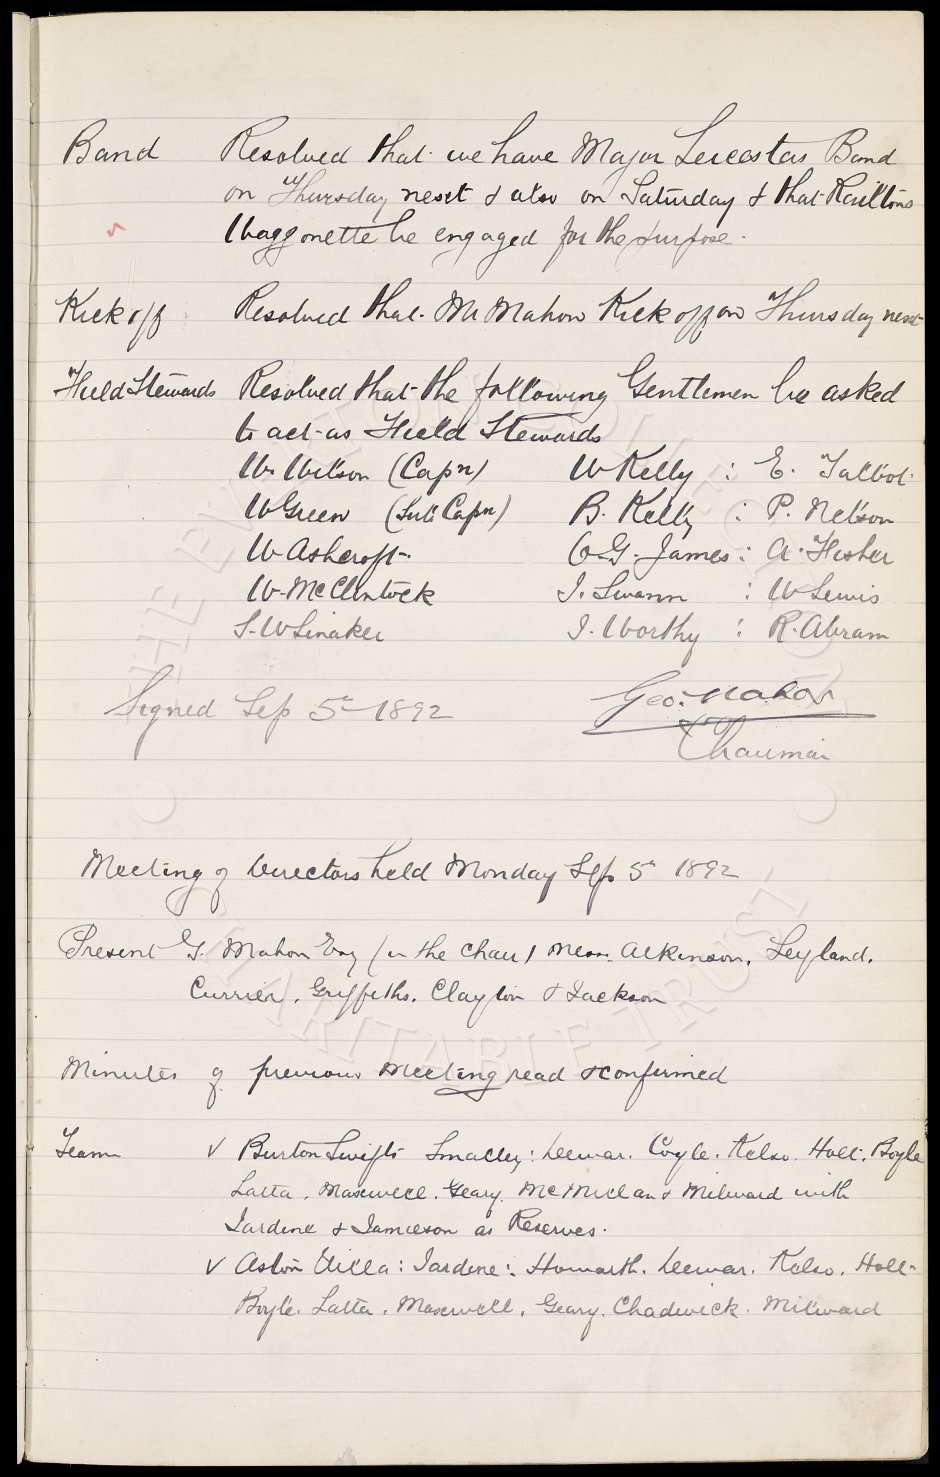 Band Resolved that we have Major Leicesters Band
on Thursday next & also on Saturday & that Railtons
Waggonette be engaged for the purpose.
Kick off Resolved that Mr Mahon Kick off on Thursday next
Field Stewards Resolved that the following Gentlemen be asked
to act as Field Stewards
W. Wilson (Capn) W Kelly : E. Talbot
W Green (Sub Capn) B. Kelly : P. Nelson
W Ashcroft O G. James : A. Fisher
W. McClintock J. Swann : W Lewis
S. W Linaker J. Worthy : R. Abram
Signed Sep 5th 1892 Geo. Mahon
Chairman
Meeting of Directors held Monday Sep 5th 1892
Present G. Mahon Esq (in the chair) Messrs. Atkinson. Leyland.
Currier. Griffiths. Clayton & Jackson
Minutes of previous Meeting read & confirmed
Team ✓ Burton Swifts Smalley : Dewar. Coyle. Kelso. Holt. Boyle
Latta. Maxwell. Geary. McMillan & Milward with
Jardine & Jamieson as Reserves.
✓ Aston Villa : Jardine : Howarth. Dewar. Kelso. Holt
Boyle. Latta. Maxwell. Geary. Chadwick. Milward
THE EVERTON COLLECTION
CHARITABLE TRUST